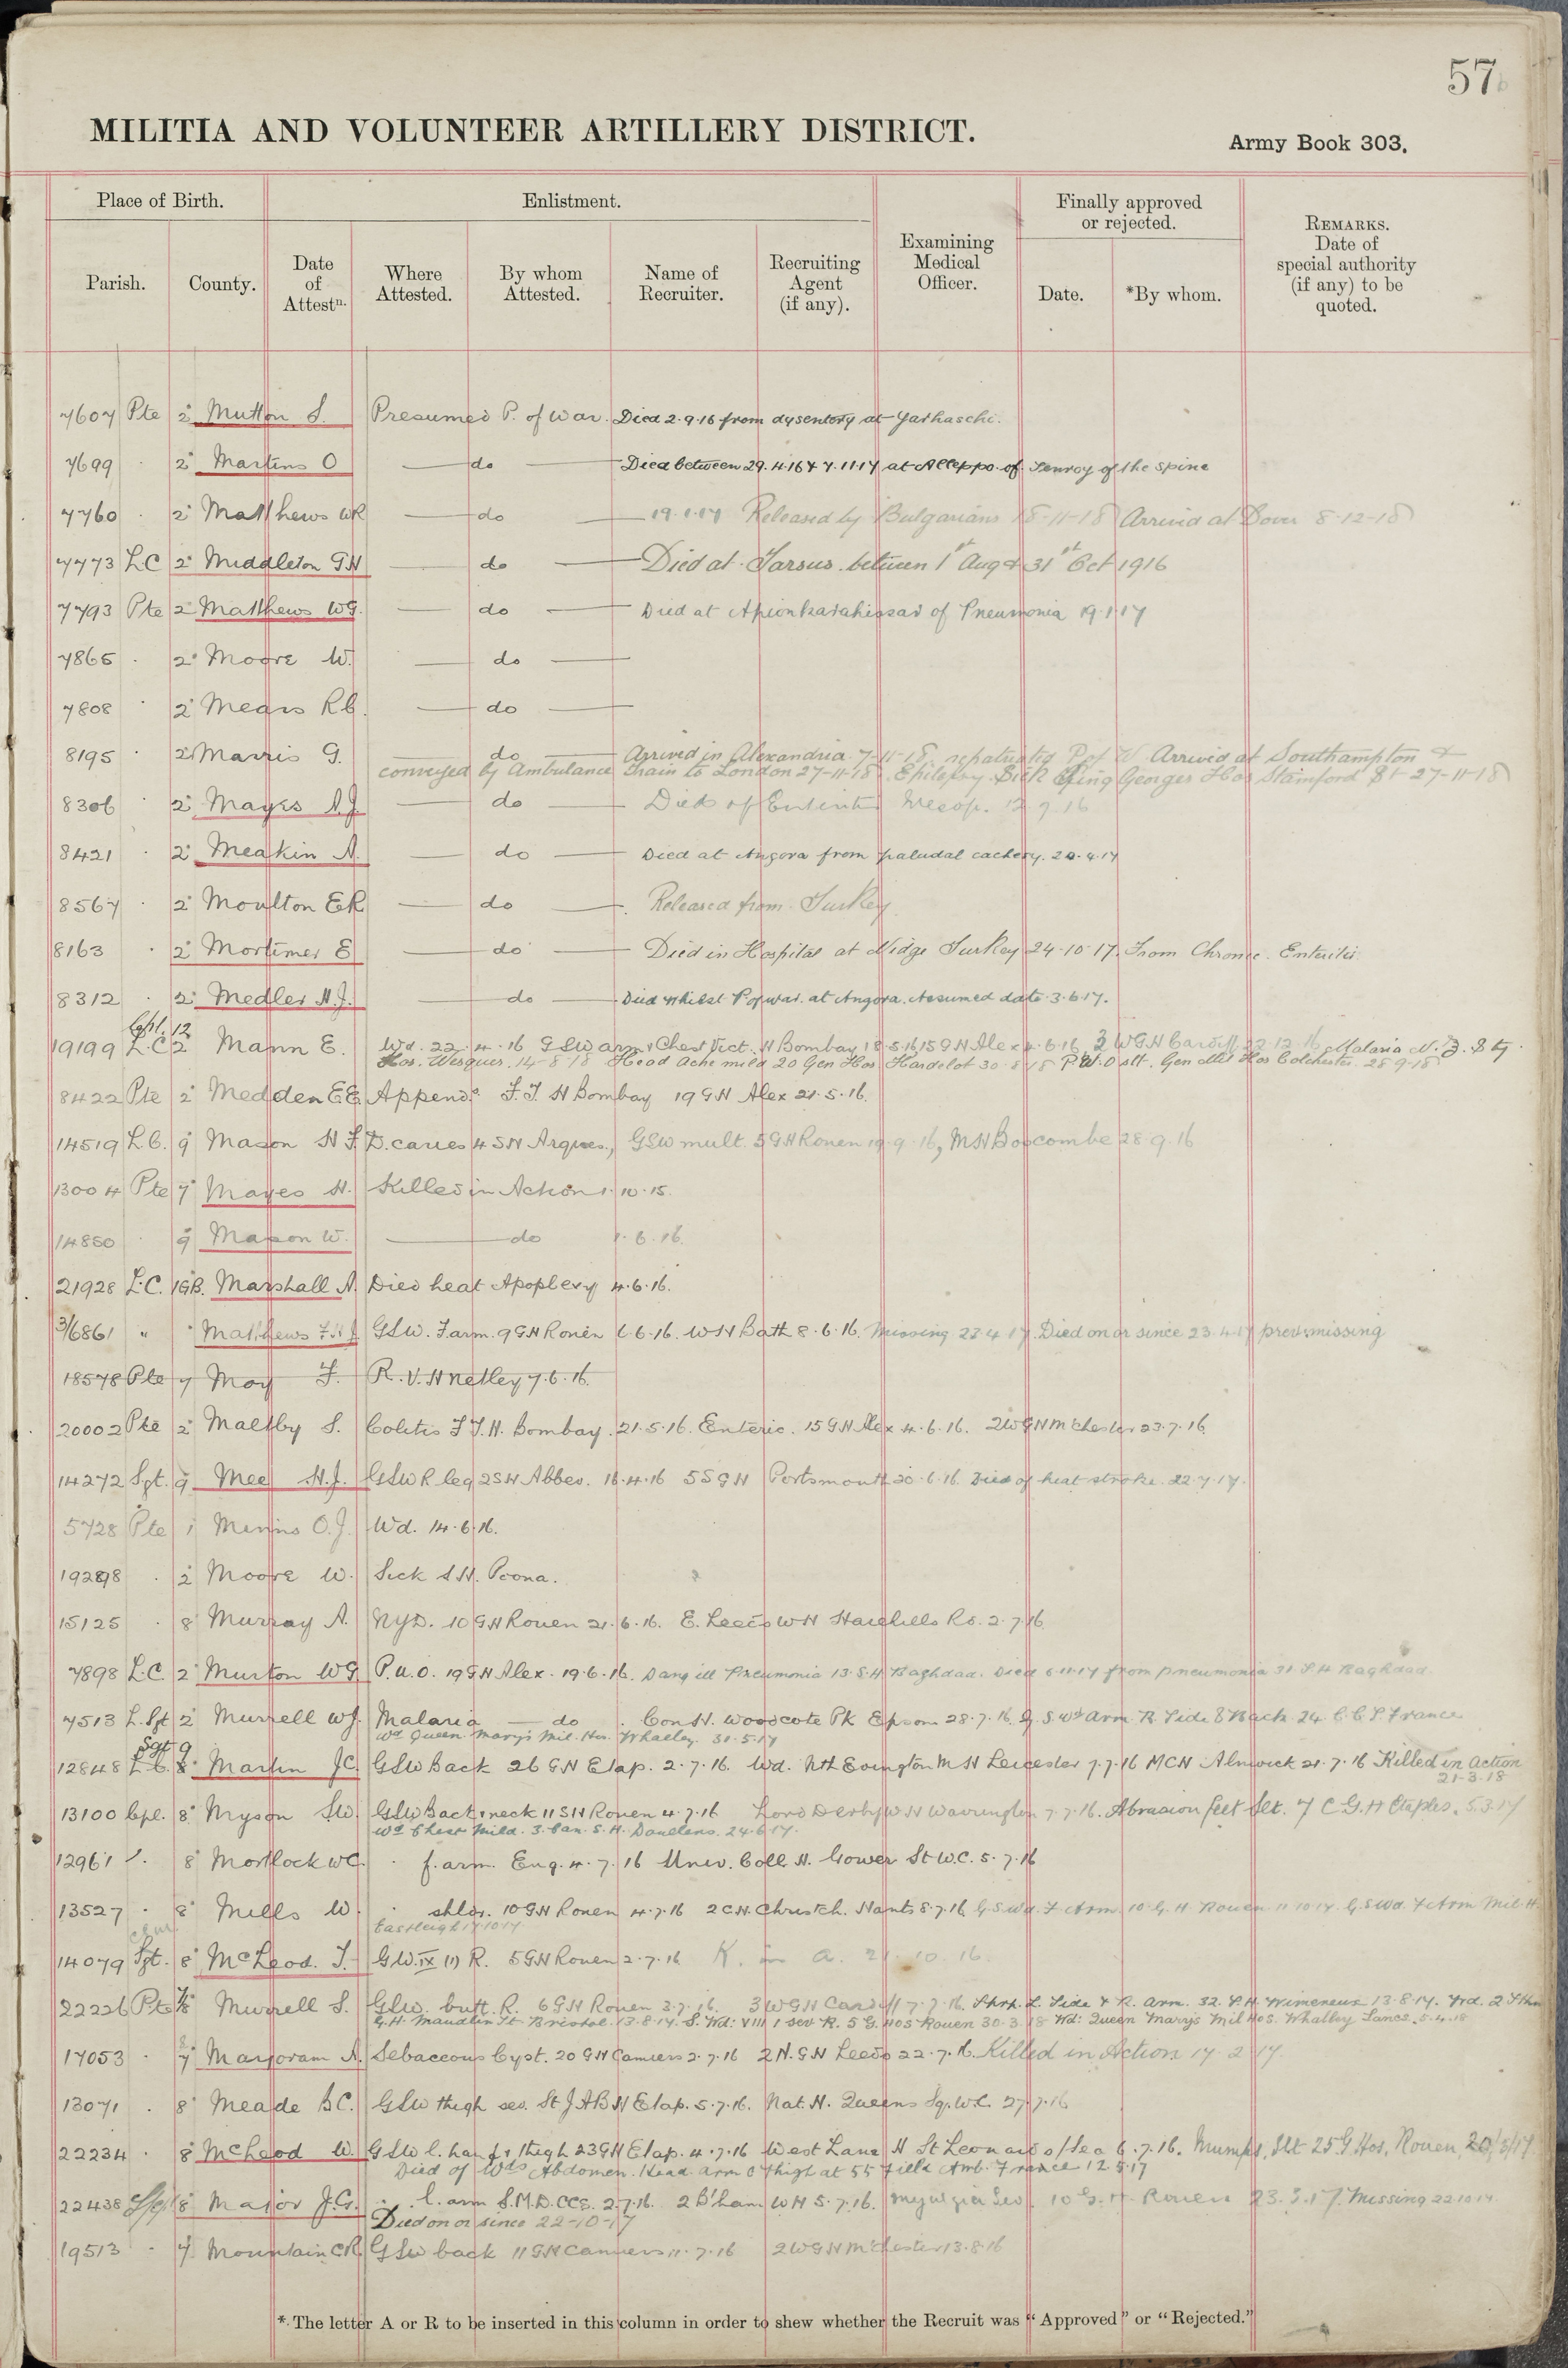 57
MILITIA AND VOLUNTEER ARTILLERY DISTRICT.
Army Book 303.
Place of Birth.
Enlistment.
Finally approved or rejected.
Parish.
County.
Date of Attestn.
Where Attested.
By whom Attested.
Name of Recruiter.
Recruiting Agent (if any).
Examining Medical Officer.
Date.
*By whom.
REMARKS. Date of special authority (if any) to be quoted.
7607 Pte 2 Mutton S. Presumed P. of War. Died 2.9.16 from dysentery at Yarhaschi.
7699 . 2 Martins O do Died between 29.4.16 & 7.11.17 at Aleppo of of the spine
7760 . 2 Matthews WR do 19.1.17 Released by Bulgarians 18-11-18 Arrived at Dover 8-12-18
7773 L.C 2 Middleton G.H do Died at Tarsus between 1st Aug & 31st Oct 1916
7793 Pte 2 Matthews WG. do Died at Afionkarahissar of Pneumonia 19.1.17
7865 . 2 Moore W. do
7808 . 2 Means R.C. do
8195 . 2 Marris G. do Arrived in Alexandria 7-11-18, repatriated P of W Arrived at Southampton &
conveyed by Ambulance Train to London 27-11-18. Epilepsy Sick King Georges Hos Stamford St 27-11-18
8306 . 2 Mayes A.J. do Died of Enteritis Mesop. 12 9 16
8421 . 2 Meakin A. do Died at Angora from paludal cachexy. 20.4.17
8567 . 2 Moulton ER do Released from Turkey
8163 . 2 Mortimer E do Died in Hospital at Nidge Turkey 24-10-17. From Chronic Enteritis
8312 . 2 Medler H.J. do Died whilst P of war. at Angora. Assumed date 3.6.17.
Cpl. 12
19199 L.C 2 Mann E. Wd. 22.4.16 GSW arm & Chest Vict. H Bombay 18.5.16 15 GH Alex 4.6.16. 3 WGH Cardiff 22.12.16 Malaria
Hos. Wesques. 14-8-18 Head Ache mild 20 Gen Hos. Hardelot 30-8-18 P.U.O slt. Gen Mil Hos Colchester 28-9-18
8422 Pte 2 Medden E.E. Appends. F.T. H Bombay 19 GH Alex 21.5.16.
14519 L.C. 9 Mason H F. D. caries 4 SH Arques, GSW mult. 5 GH Rouen 19.9.16, MH Boscombe 28.9.16
13004 Pte 7 Mayes H. Killed in Action 1.10.15.
14850 . 9 Mason W. do 1.6.16.
21928 L.C. 1GB. Marshall A. Died heat Apoplexy 4.6.16.
3/6861 " . Matthews F.H.J. GSW. F.arm. 9 GH Rouen 6.6.16. WH Bath 8.6.16. Missing 23 4 17. Died on or since 23.4.17 prev. missing
18578 Pte 7 Moy F. R.V.H Netley 7.6.16.
20002 Pte 2 Maltby S. Colitis F.T.H. Bombay. 21.5.16. Enteric. 15 GH Alex 4.6.16. 2WGH M'chester 23.7.16.
14272 Sgt. 9 Mee H.J. GSW R leg 2SH Abbev. 16.4.16 5SGH Portsmouth 20.6.16. Died of heat stroke. 22.7.17.
5728 Pte 1 Menins O.J. Wd. 14.6.16.
19298 . 2 Moore W. Sick S.H. Poona.
15125 . 8 Murray A. NYD. 10 GH Rouen 21.6.16. E. Leeds WH Harehills Rd. 2.7.16.
7898 L.C. 2 Murton WG. P.u.o. 19 GH Alex. 19.6.16. Dang ill Pneumonia 13.S.H Baghdad. Died 6.11.17 from pneumonia 31 S.H Baghdad.
7513 L.Sgt 2 Murrell WJ. Malaria do . Con H. Woodcote Pk Epsom 28.7.16. G.S. Wd Arm R Side & Back 24 C.C.S. France
Wd Queen Mary's Mil. Hos. Whalley. 31.5.17
Sgt 9
12848 L.C. 8 Martin JC. GSW Back 26 GH Etap. 2.7.16. Wd. Nth Evington M H Leicester 7.7.16 MCH Alnwick 21.7.16 Killed in action
21-3-18
13100 Cpl. 8 Myson SW. GSW Back & neck 11 SH Rouen 4.7.16 Lord Derby WH Warrington 7.7.16. Abrasion feet slt. 7 C.G.H Etaples. 5.3.17
Wd Chest Mild. 3. Can. S.H. Doullens. 24.6.17.
12961 . 8 Mortlock WC. . f.arm. Eng. 4.7.16 Univ. Coll. H. Gower St W.C. 5.7.16
13527 . 8 Mills W. . shldr. 10 GH Rouen 4.7.16 2 C.H. Christch. Hants 8.7.16 G.S.Wd. F Arm 10.G.H. Rouen 11.10.17. G.S.Wd. F Arm Mil. H.
Eastleigh 17.10.17
14079 Sgt. 8 McLeod. J. GW. IX (1) R. 5GH Rouen 2.7.16 K. in a. 21.10.16.
22226 Pte 7/8 Murrell S. GSW. butt. R. 6GH Rouen 3.7.16. 3WGH Cardiff 7.7.16. Shrp. L. Side & R. arm. 32. S.H. Wimereux 13.8.17. Wd. 2 Sthn
G.H. Maudlin St Bristol. 13.8.17. S. Wd: VIII 1 sev R. 5 G. Hos Rouen 30-3-18 Wd: Queen Mary's Mil Hos. Whalley Lancs. 5.4.18
17053 . 7 Marjoram A. Sebaceous Cyst. 20 GH Camiers 2.7.16 2N.GH Leeds 22.7.16. Killed in Action 17.2.17.
13071 . 8 Meade B.C. GSW thigh sev. St J A B H Etap. 5.7.16. Nat. H. Queens Sq. W.C. 27.7.16
22234 . 8 McLeod W. GSW l. hand & thigh 23GH Etap. 4.7.16 West Lane H St Leonards o/Sea 6.7.16. Mumps. slt 25 G. Hos. Rouen, 20/3/17
Died of Wds Abdomen. Head arm & thigh at 55 Field Amb. France 12.5.17
22438 8 Major J.G. . l. arm S.M.D. CCS. 2.7.16. 2 B'ham WH 5.7.16. Myalgia Sev. 10 G.H. Rouen 23.3.17. Missing 22.10.17.
Died on or since 22-10-17
19513 . 7 Mountain CR. GSW back 11GH Camiers 11.7.16 2WGH M'chester 13.8.16
*. The letter A or R to be inserted in this column in order to shew whether the Recruit was "Approved" or "Rejected."